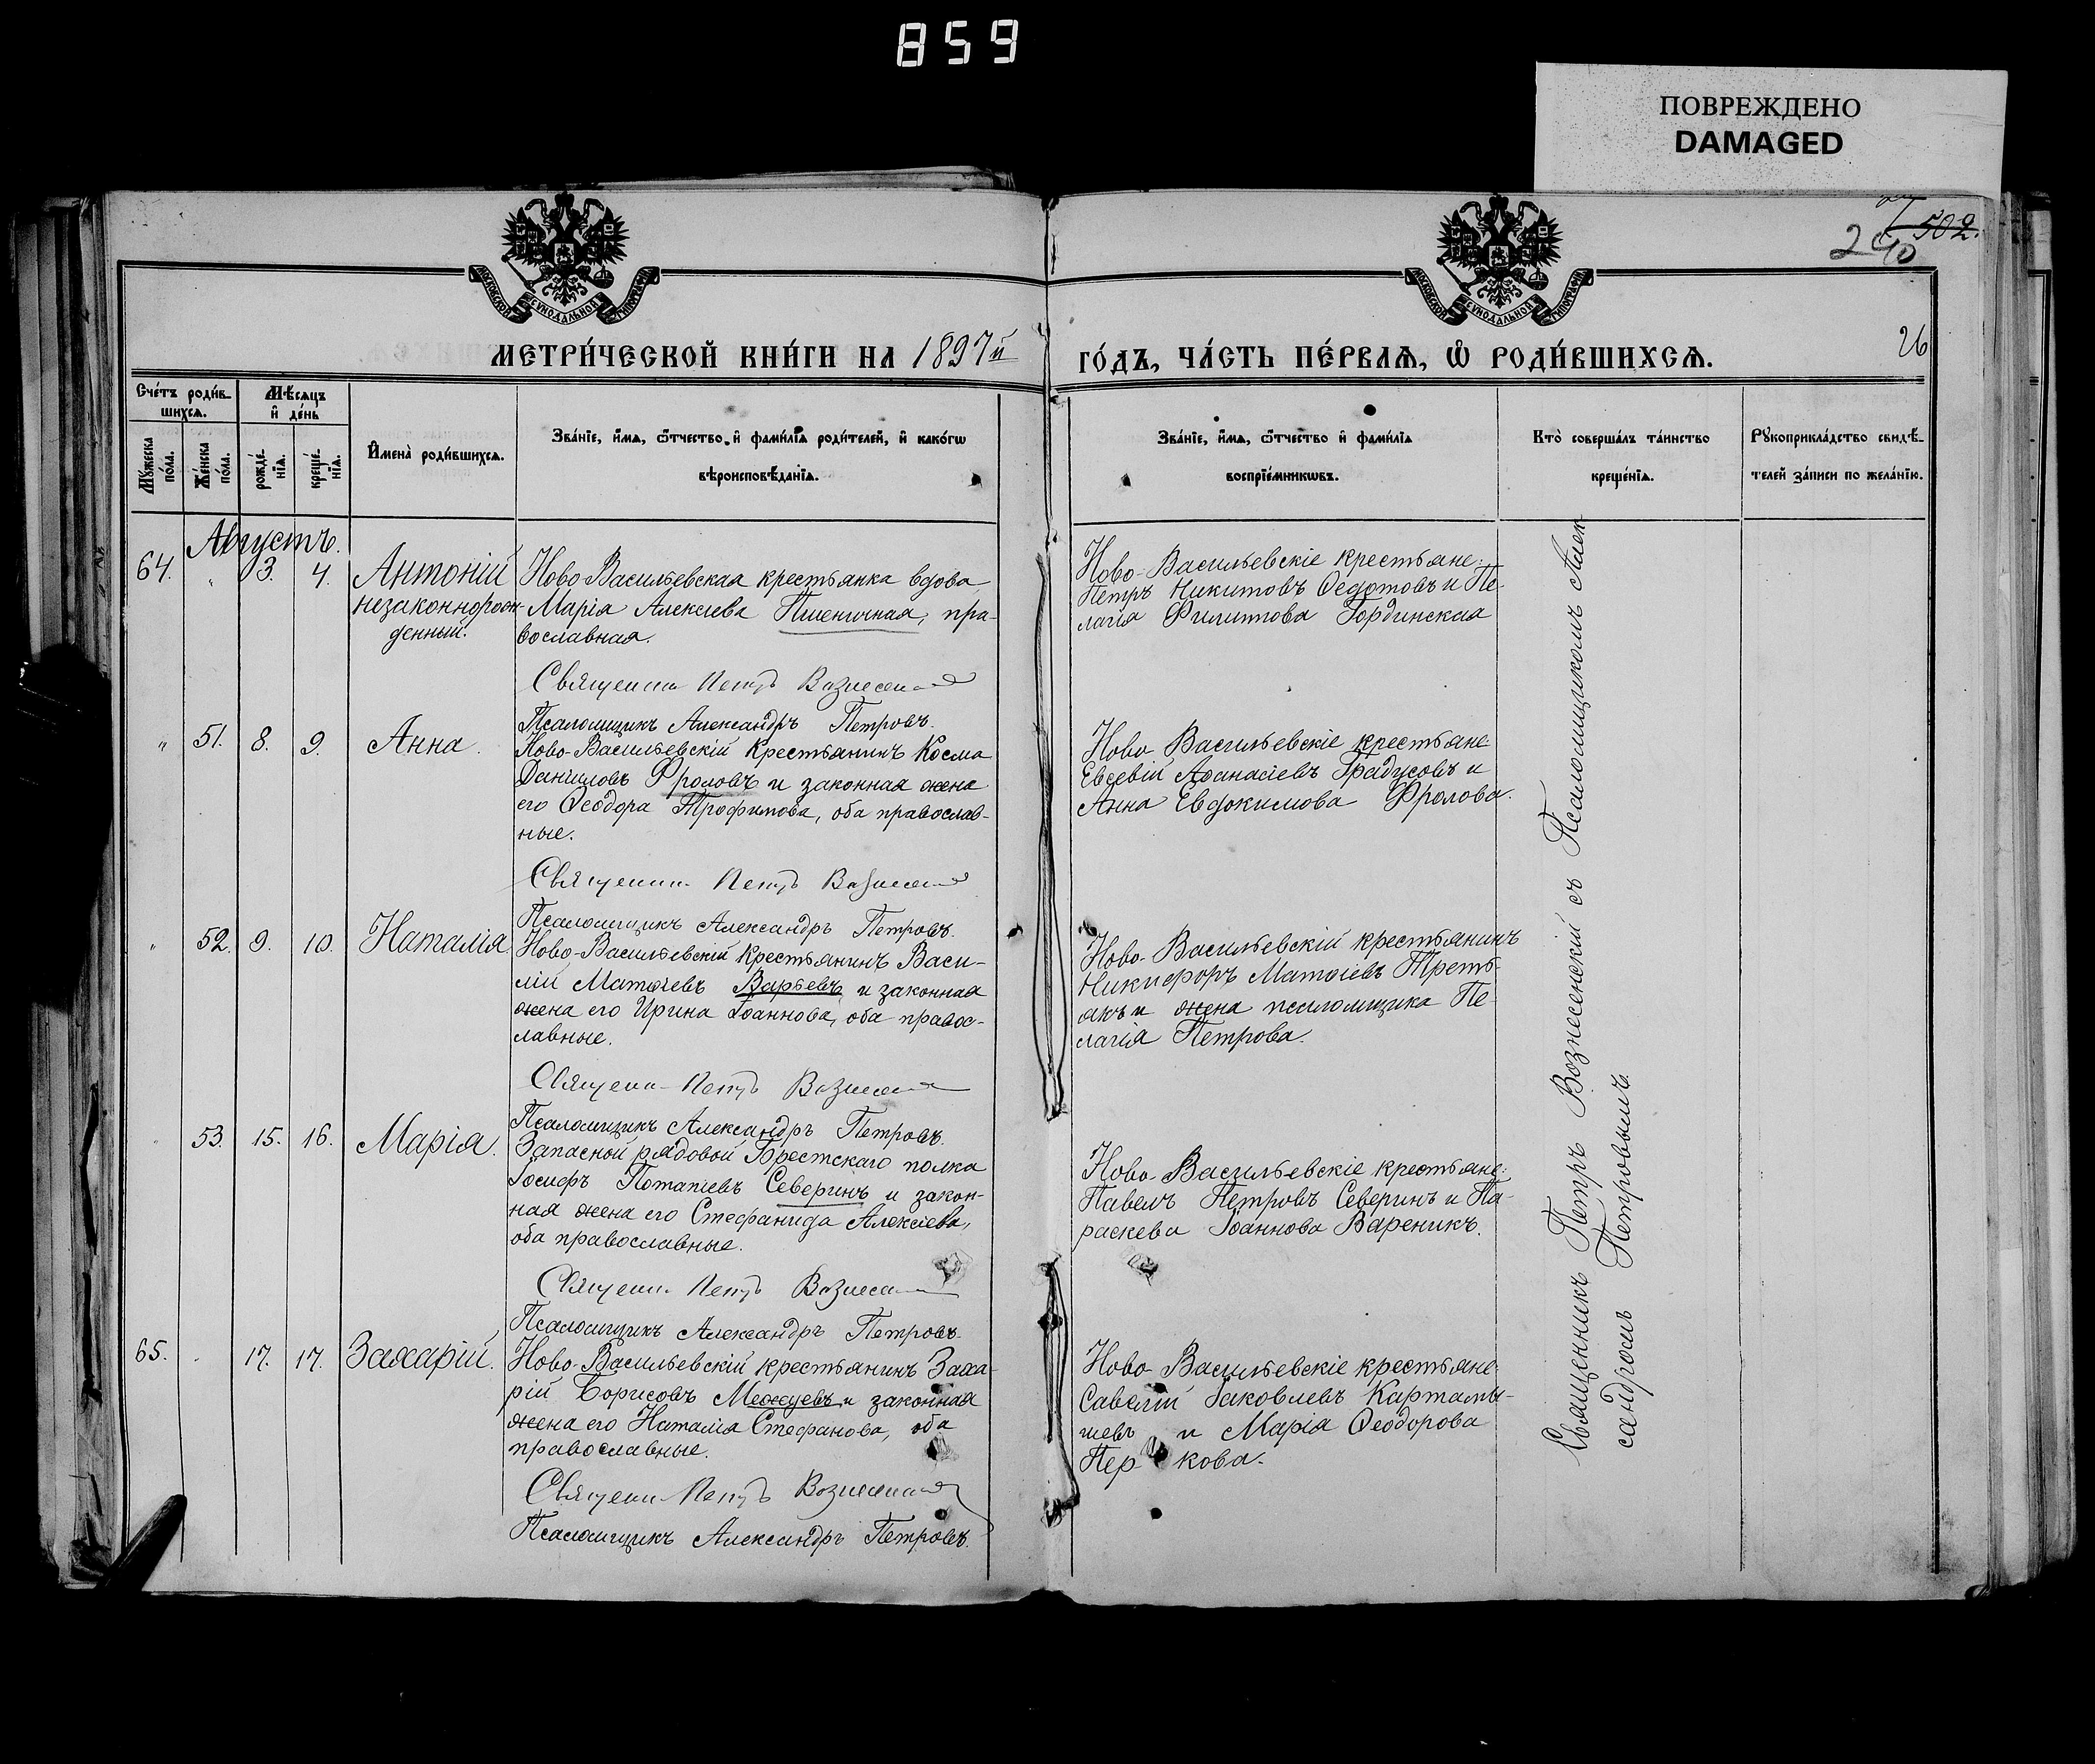 859
ПОВРЕЖДЕНО
DAMAGED
502.
240
26
МОСКОВСКОЙ СѴНОДАЛЬНОЙ ТИПОГРАФІИ
МОСКОВСКОЙ СѴНОДАЛЬНОЙ ТИПОГРАФІИ
МЕТРИ́ЧЕСКОЙ КНИ́ГИ НА 1897й
ГО́ДЪ, ЧА́СТЬ ПЕ́РВАѦ, Ѽ РОДИ́ВШИХСѦ.
Сче́тъ роди́в-
шихсѧ.
Мѣ́сѧцъ
и҆ де́нь
Мꙋ́жеска
по́ла.
Же́нска
по́ла.
рожде́-
нїѧ.
креще́-
нїѧ.
И҆мена̀ роди́вшихсѧ.
Зва́нїе, и҆́мѧ, ѻ҆́тчество, и҆ фами́лїѧ роди́телей, и҆ како́гѡ
вѣроисповѣ́данїѧ.
Зва́нїе, и҆́мѧ, ѻ҆́тчество и҆ фами́лїѧ
воспрїе́мникѡвъ.
Кто̀ соверша́лъ та́инство
креще́нїѧ.
Рꙋкоприкла́дство свидѣ́-
телей за́писи по жела́нїю.
Августъ.
64. " 3. 4. Антоній
незаконнорож-
денный.
Ново-Васильевская крестьянка вдова
Марія Алексіева Пшеничная, пра-
вославная.
Священникъ Петръ Вознесенскій
Псаломщикъ Александръ Петровъ.
Ново-Васильевскіе крестьяне:
Петръ Никитовъ Ѳедотовъ и Пе-
лагія Филиппова Гординская
" 51. 8. 9. Анна.
Ново-Васильевскій крестьянинъ Косма
Даніиловъ Фроловъ и законная жена
его Ѳеодора Трофимова, оба православ-
ные.
Священникъ Петръ Вознесенскій
Псаломщикъ Александръ Петровъ.
Ново-Васильевскіе крестьяне
Евсевій Аѳанасіевъ Градусовъ и
Анна Евдокимова Фролова.
" 52. 9. 10. Наталія
Ново-Васильевскій крестьянинъ Васи-
лій Матѳіевъ Варьевъ и законная
жена его Ирина Іоаннова, оба правос-
лавные.
Священникъ Петръ Вознесенскій
Псаломщикъ Александръ Петровъ.
Ново-Васильевскій крестьянинъ
Никифоръ Матѳіевъ Треть-
якъ и жена псаломщика Пе-
лагія Петрова.
" 53. 15. 16. Марія.
Запасной рядовой Брестскаго полка
Іосифъ Потапіевъ Северинъ и закон-
ная жена его Стефанида Алексіева,
оба православные.
Священникъ Петръ Вознесенскій
Псаломщикъ Александръ Петровъ.
Ново-Васильевскіе крестьяне:
Павелъ Петровъ Северинъ и Па-
раскева Іоаннова Вареникъ.
65. " 17. 17. Захарій.
Ново-Васильевскій крестьянинъ Заха-
рій Борисовъ Межуевъ и законная
жена его Наталія Стефанова, оба
православные.
Священникъ Петръ Вознесенскій
Псаломщикъ Александръ Петровъ.
Ново-Васильевскіе крестьяне:
Савелій Іаковлевъ Картамы-
шевъ и Марія Ѳеодорова
Пер кова.
Священникъ Петръ Вознесенскій съ Псаломщикомъ Алек-
сандромъ Петровымъ.